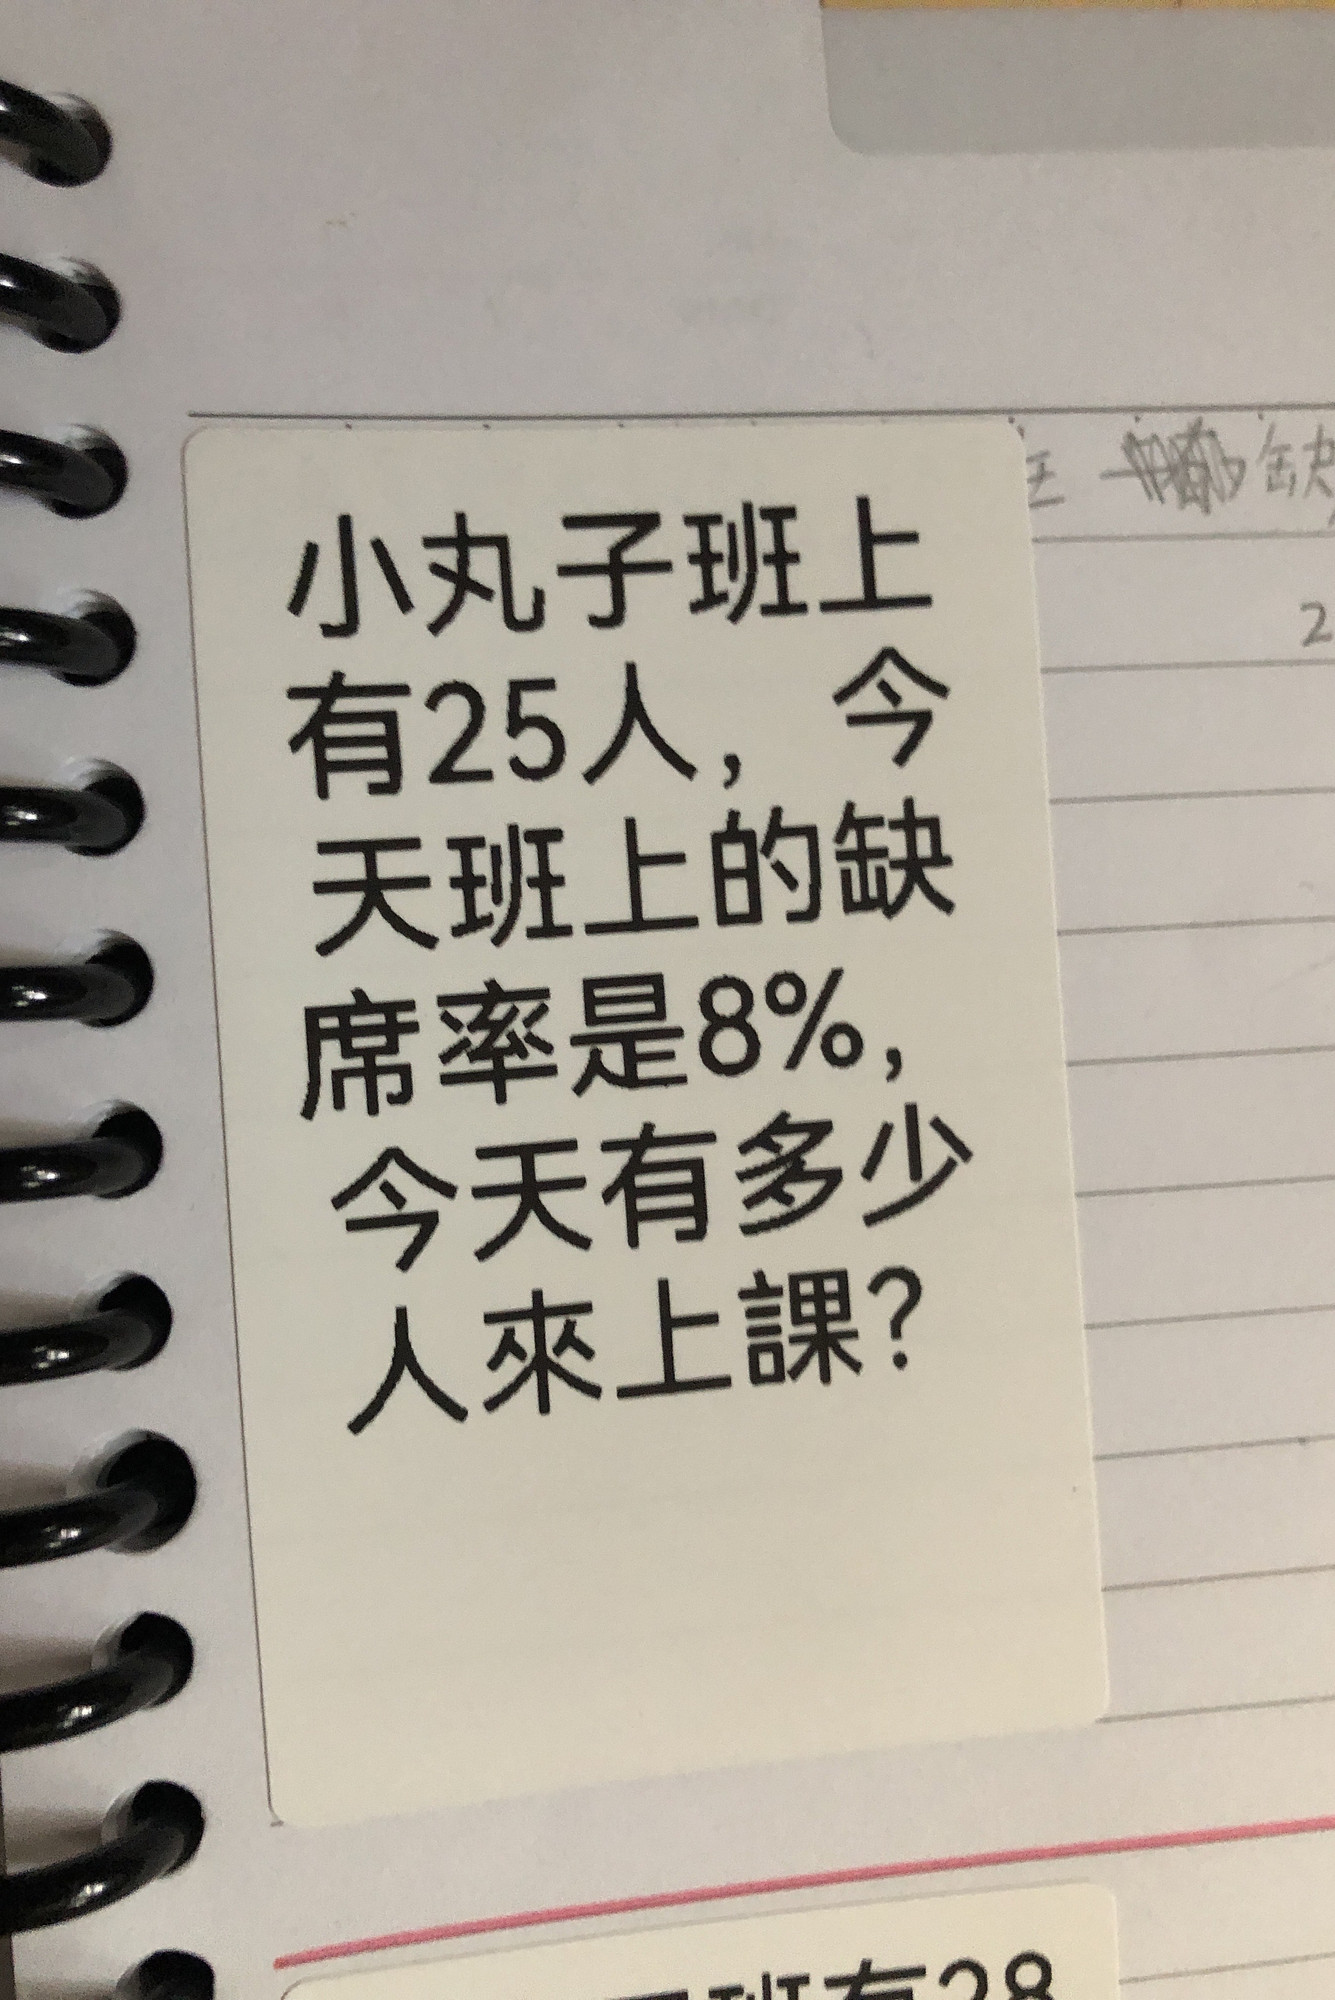 小丸子班上
有25人，今
天班上的缺
席率是8%，
今天有多少
人來上課？
缺
2
班有28